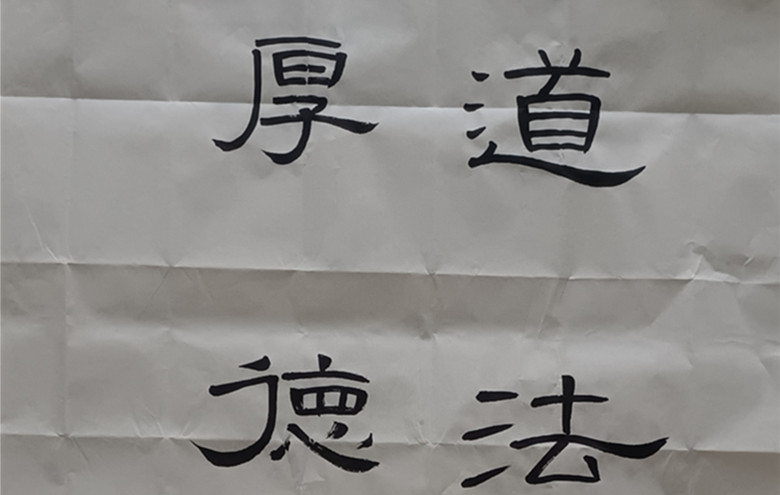 道法
厚德